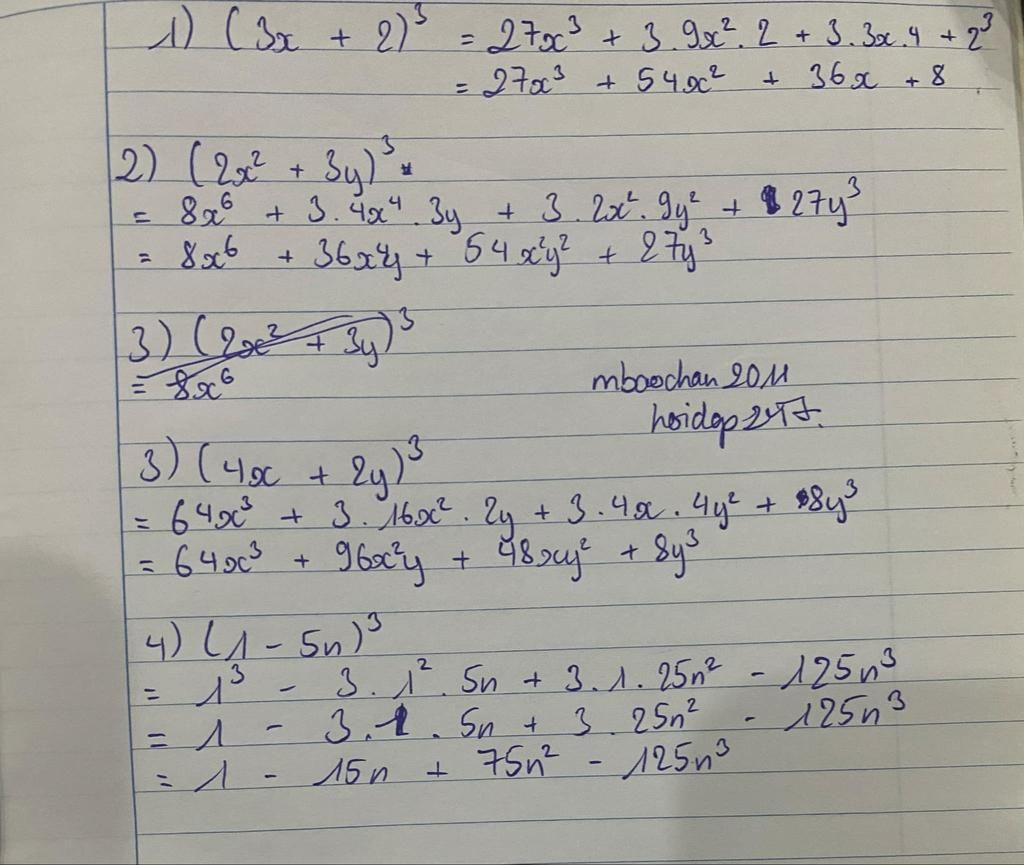 1) (3x + 2)³ = 27x³ + 3.9x².2 + 3.3x.4 + 2³
= 27x³ + 54x² + 36x + 8
2) (2x² + 3y)³
= 8x⁶ + 3.4x⁴.3y + 3.2x².9y² + 27y³
= 8x⁶ + 36x⁴y + 54x²y² + 27y³
3) (2x² + 3y)³
= 8x⁶
mbaochan2011
hoidap247.
3) (4x + 2y)³
= 64x³ + 3.16x².2y + 3.4x.4y² + 8y³
= 64x³ + 96x²y + 48xy² + 8y³
4) (1 - 5n)³
= 1³ - 3.1².5n + 3.1.25n² - 125n³
= 1 - 3.1.5n + 3.25n² - 125n³
= 1 - 15n + 75n² - 125n³